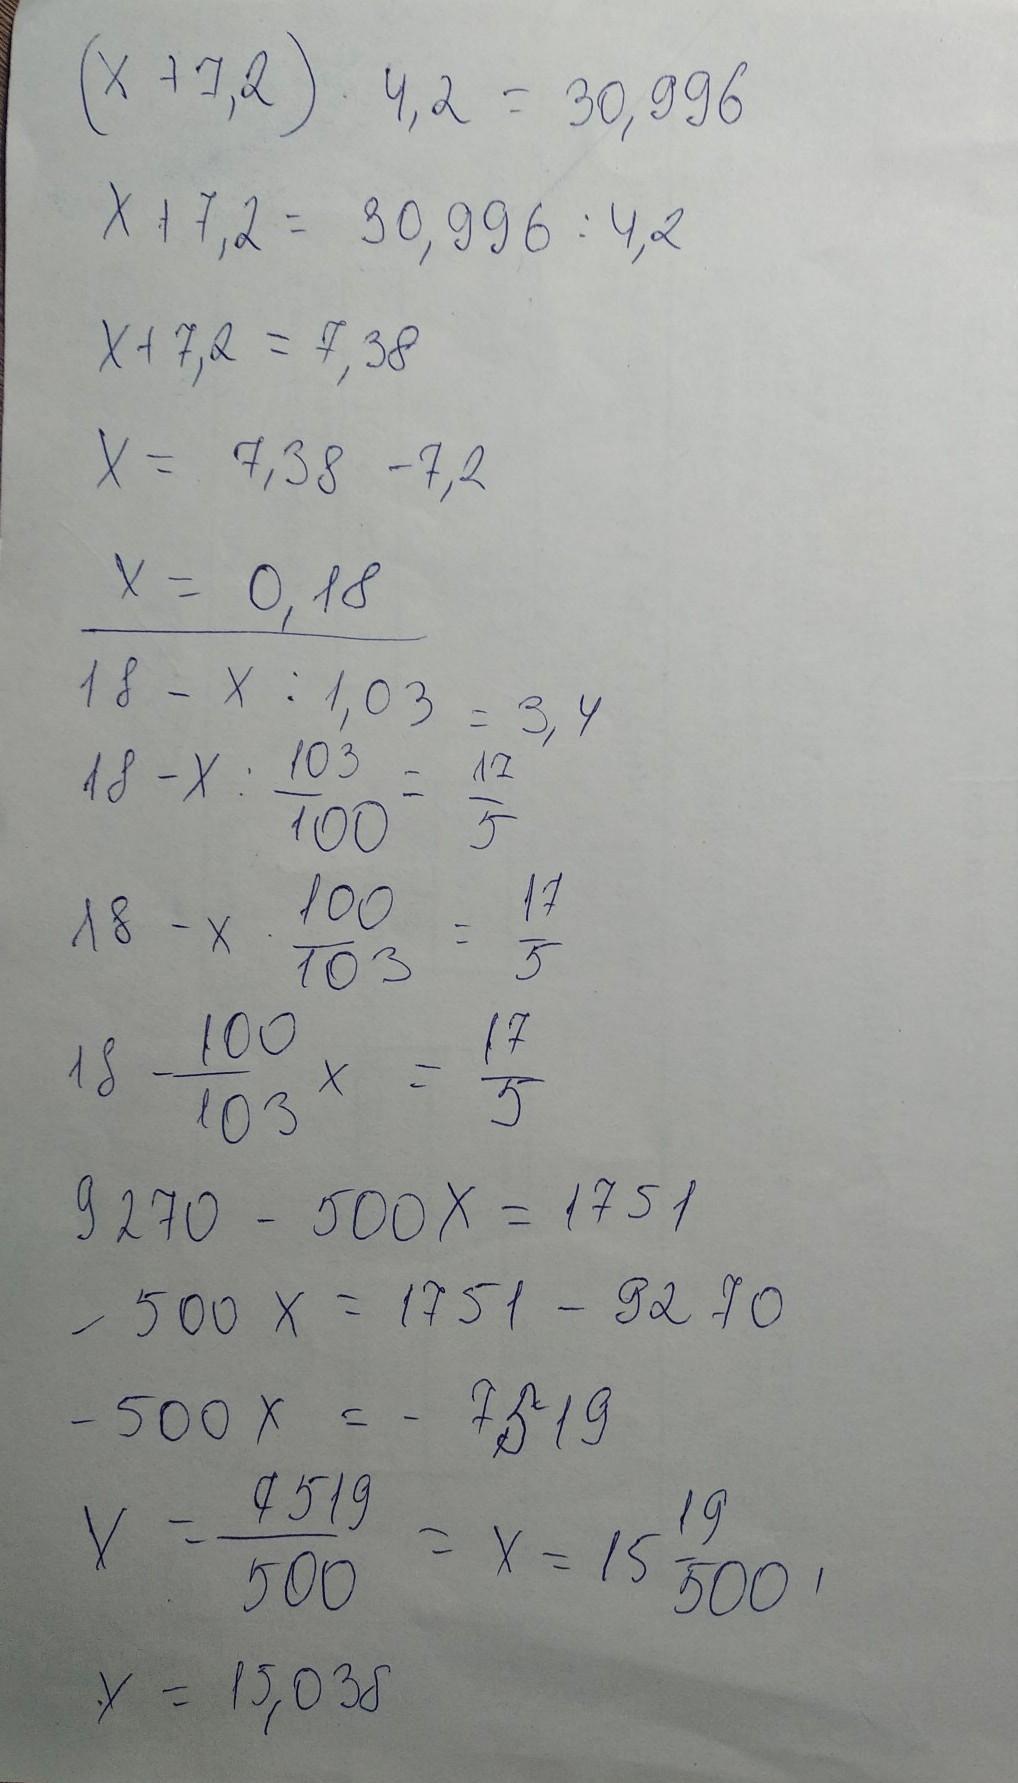 (x + 7,2) · 4,2 = 30,996
x + 7,2 = 30,996 : 4,2
x + 7,2 = 7,38
x = 7,38 - 7,2
x = 0,18
18 - x : 1,03 = 3,4
18 - x : 103/100 = 17/5
18 - x · 100/103 = 17/5
18 - 100/103 x = 17/5
9270 - 500x = 1751
- 500x = 1751 - 9270
- 500x = - 7519
x = 7519/500 = x = 15 19/500,
x = 15,038